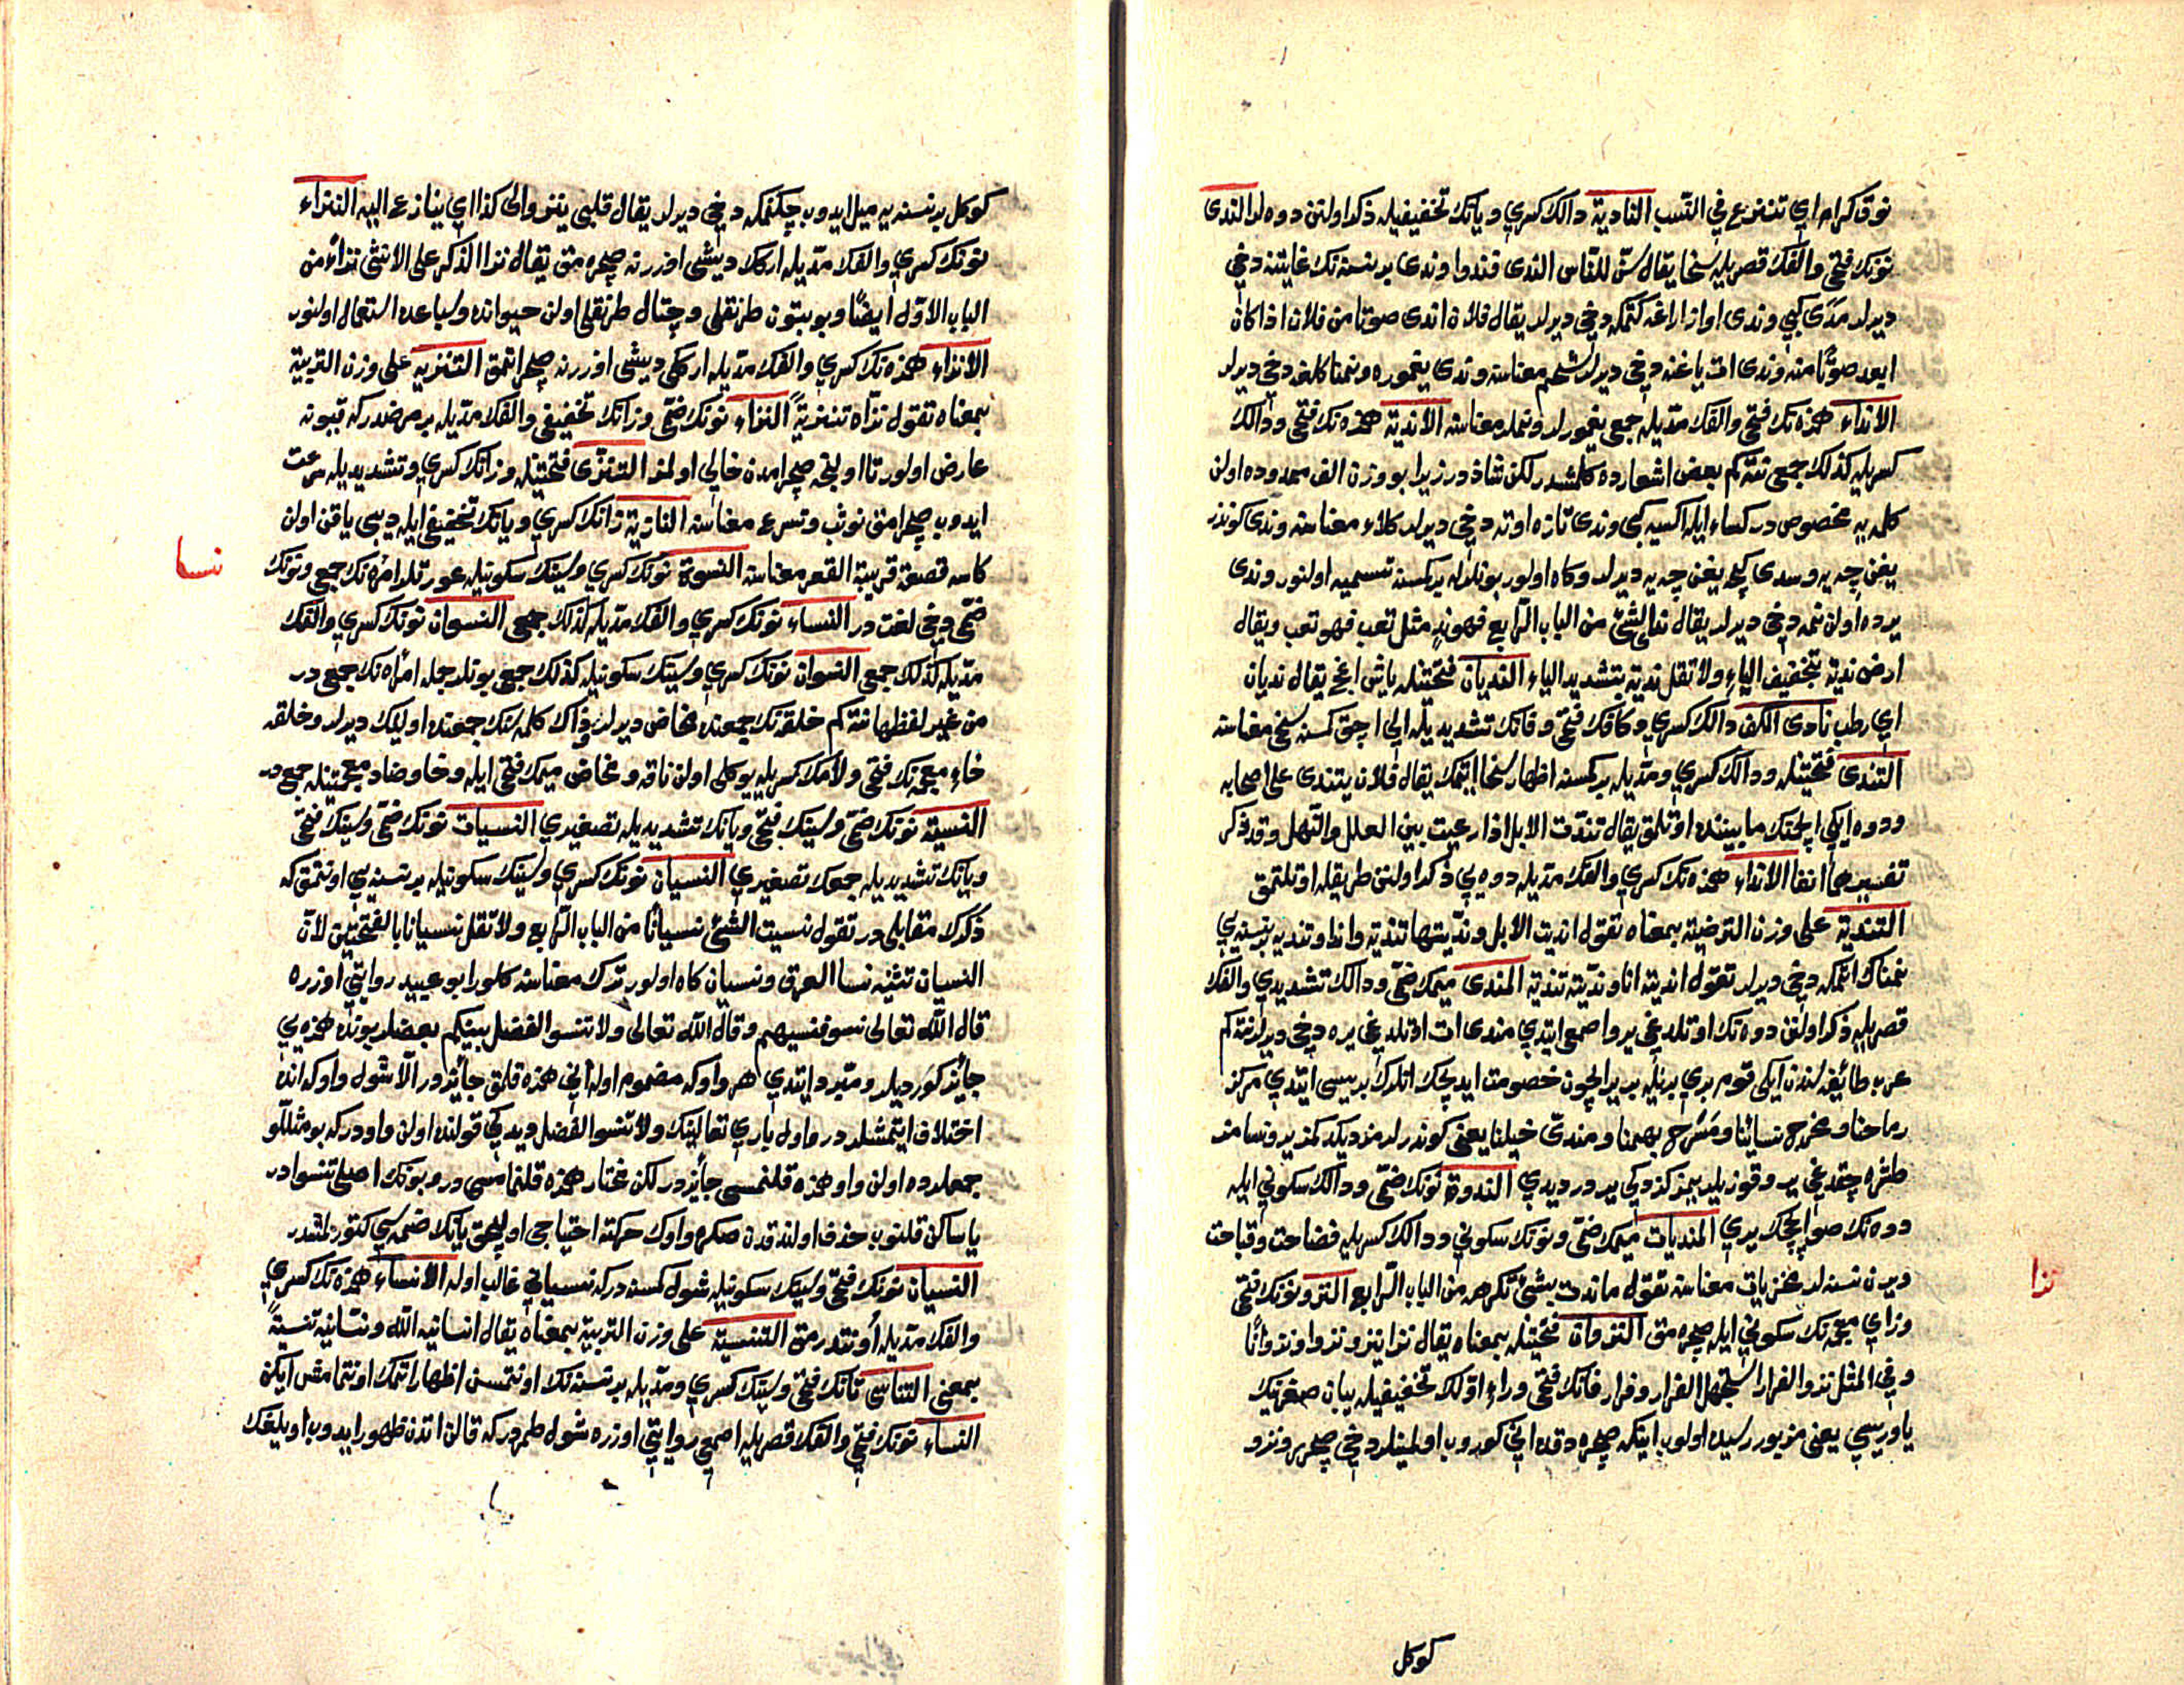 نوق كرام اي تنزع في النسب النادية دالك كسري و يانك تخفيفيله ذكر اولنن دوه لر الندى
نونك فتحي والفك قصريله سخا يقال سن للناس الندى فندوا وندى بر نسنه نك غايتنه دخي
ديرلر مدى كبي وندى اواز اراغه كتمكه دخي ديرلر يقال فلان اندى صوتا من فلان اذا كان
ابعد صوتا منه وندى ات ياغنه دخي ديرلر شحم معناسنه وندى يغموره ونمناكلغه دخي ديرلر
الانداء همزه نك فتحي والفك مديله جمعي يغمورلر ونملر معناسنه الاندية همزه نك فتحي ودالك
كسريله كذلك جمعي نته كم بعض اشعارده كلمشدر لكن شاذدر زيرا بو وزن الف ممدوده اولن
كلمه يه مخصوصدر كساء ايله اكسيه كبي وندى تازه اوته دخي ديرلر كلاء معناسنه وندى كوندز
يغن چيه يه وسدى كيجه يغن چيه يه ديرلر وكاه اولور بونلرله بر كسنه تسميه اولنور وندى
يرده اولن نمه دخي ديرلر يقال ندي الشئ من الباب الرابع فهو ند مثل تعب فهو تعب ويقال
ارض ندية بتخفيف الياء ولا تقل ندية بتشديد الياء الندیان فتحتينله ياش اغج يقال نديان
اي رطب نادى الكف دالك كسري وكافك فتحي وفانك تشديديله الي اچق كمسنه سخي معناسنه
التندى فتحتينله ودالك كسري ومديله بر كمسنه اظهار سخا ايتمك يقال فلان يتندى على اصحابه
ودوه ايكي ايچمك مابيننده اوتلمق يقال تندت الابل اذا رعيت بين العلل والنهل وقد ذكر
تفسيرهما انفا الانداء همزه نك كسري والفك مديله دوه يي ذكر اولنن طريقله اوتلتمق
التندية على وزن الترضية بمعناه تقول انديت الابل ونديتها تندية واندا وتنديه بر نسنه يي
نمناك اتمكه دخي ديرلر تقول انديته انا ونديته تندية المندى ميمك ضمي ودالك تشديدي والفك
قصريله ذكر اولنن دوه نك اوتلدغي ير واصمعي ايتدي مندى ات اوتلدغي يره دخي ديرلر نته كم
عرب طائفه لرندن ايكي قوم بري بريله بر ير ايچون خصومت ايديجك انلرك بريسي ايتدي مركز
رماحنا ومخرج نسائنا ومسرح بهمنا ومندى خيلنا يعني كوندرلرمز ديكدكمز ير ونسامز
طشره چقدغي ير وقوزيلريمز كزدكي ير در ديدي الندوة نونك ضمي ودالك سكوني ايله
دوه نك صو ايچجك يري المنديات ميمك ضمي ونونك سكوني ودالك كسريله فضاحت وقباحت
ويرن نسنه لر مخزيات معناسنه تقول ما نديت بشئ تكرهه من الباب الرابع النزو نونك فتحي
وزاي معجمه نك سكوني ايله صچرامق النزوان فتحتينله بمعناه يقال نزا ينزو نزوا ونزوانا
وفي المثل نزو الفرار استجهل الفرار وفرار فانك فتحي وراء اولك تخفيفيله يبان صغرينك
ياوريسي يعني مزبور رسيده اولوب ايتكه صچرادقده اني كوروب اولبيلر دخي صچرر ونزو
كوكل
نزا
كوكل بر نسنه يه ميل ايدوب چكنمكه دخي ديرلر يقال قلبي ينزو الى كذا اي ينازع اليه النزاء
نونك كسري والفك مديله اركك ديشي اوزرنه صچرامق يقال نزا الذكر على الانثى نزاء من
الباب الاول ايضا وبو بتون طرنقلي وچتال طرنقلي اولن حيوانده وسباعده استعمال اولنور
الانزاء همزه نك كسري والفك مديله اركي ديشي اوزرنه صچراتمق التنزيه على وزن التربية
بمعناه تقول نزاه تنزية النزاء نونك ضمي وزانك تخفيفي والفك مديله بر مرضدركه قيونه
عارض اولور تا اولنجه صچرامدن خالي اولمز التنزى فتحتينله وزانك كسري وتشديديله سرعت
ايدوب صچرامق توثب وتسرع معناسنه النازية زانك كسري ويانك تخفيفي ايله ديبي ياقن اولن
كاسه قصعة قريبة القعر معناسنه النسوة نونك كسري وسينك سكونيله عورتلر امراه نك جمعي ونونك
ضمي دخي لغتدر النساء نونك كسري والفك مديله كذلك جمعي النسوان نونك كسري والفك
مديله كذلك جمعي النسوان نونك كسري وسينك سكونيله كذلك جمعي بونلر جمله امراه نك جمعي در
من غير لفظها نته كم خلفه نك جمعنده مخاض ديرلر وذاك كلمه سنك جمعنده اوليك ديرلر وخلفه
خاء معجمه نك فتحي ولامك كسريله يوكلي اولن ناقه و مخاض ميمك فتحي ايله وخا وضاد معجمتينله جمعي در
النسية نونك ضمي وسينك فتحي ويانك تشديديله تصغيري النسيات نونك ضمي وسينك فتحي
ويانك تشديديله جمعك تصغيري النسيان نونك كسري وسينك سكونيله بر نسنه يي اونتمق كه
ذكرك مقابلي در تقول نسيت الشئ نسيانا من الباب الرابع ولا تقل نسيانا بالفتحتين لان
النسيان تثنيه نسا العرق ونسيان كاه اولور ترك معناسنه كلور ابو عبيد روايتي اوزره
قال الله تعالى نسوا فنسيهم وقال الله تعالى ولا تنسوا الفضل بينكم بعضلر بونده همزه يي
جائز كورديلر ومبرد ايتدي هر واو كه مضموم اوله اني همزه قلمق جائزدر الا شول واو كه انده
اختلاف ايتمشلردر و اول باري تعالينك ولا تنسوا الفضل ديدكي قولنده اولن واودر كه بو مثللو
جمعلرده اولن واو همزه قلنمسي جائزدر لكن مختار همزه قلنمامسي در و بونك اصلي تنسيوا در
يا ساكن قلنوب حذف اولندقدن صكره واوك حركته احتياجي اوليجق يانك ضمه سي كتورلمشدر
النسيان نونك فتحي وسينك سكونيله شول كمسنه دركه نسياني غالب اوله الانساء همزه نك كسري
والفك مديله اونتدرمق التنسية على وزن التربية بمعناه يقال انسانيه الله ونسانيه تنسية
بمعنى التناسي تانك فتحي وسينك كسري ومديله بر نسنه نك اونتمسن اظهار اتمك اونتمامش ايكن
النساء نونك فتحي والفك قصريله اصمعي روايتي اوزره شول طمردر كه قالن اتدن ظهور ايدوب اويلغك
نسا